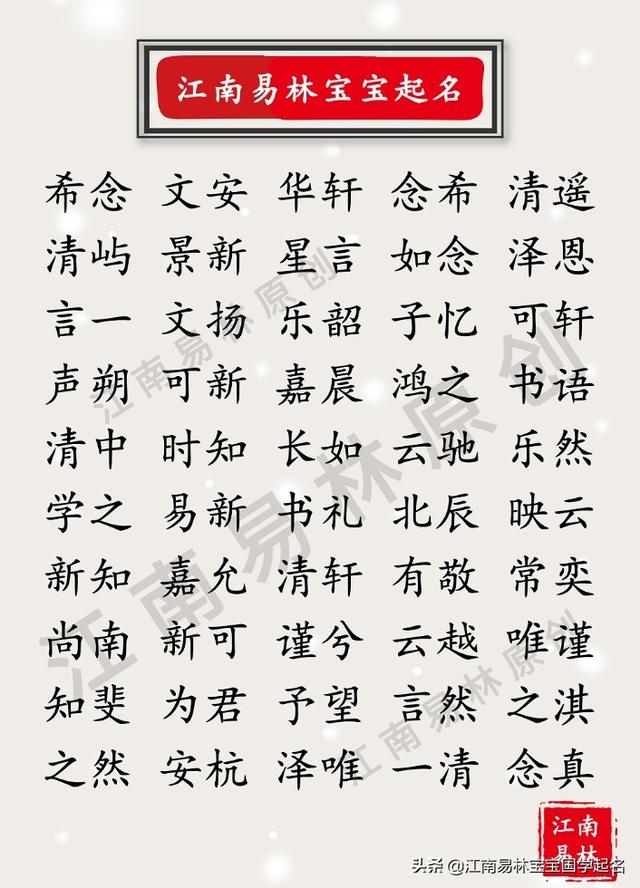 江南易林宝宝起名
希念 文安 华轩 念希 清遥
清屿 景新 星言 如念 泽恩
言一 文扬 乐韶 子忆 可轩
声朔 可新 嘉晨 鸿之 书语
清中 时知 长如 云驰 乐然
学之 易新 书礼 北辰 映云
新知 嘉允 清轩 有敬 常奕
尚南 新可 谨兮 云越 唯谨
知斐 为君 予望 言然 之淇
之然 安杭 泽唯 一清 念真
江南易林原创
江南易林原创
江南易林原创
江南
易林
头条 @江南易林宝宝国学起名